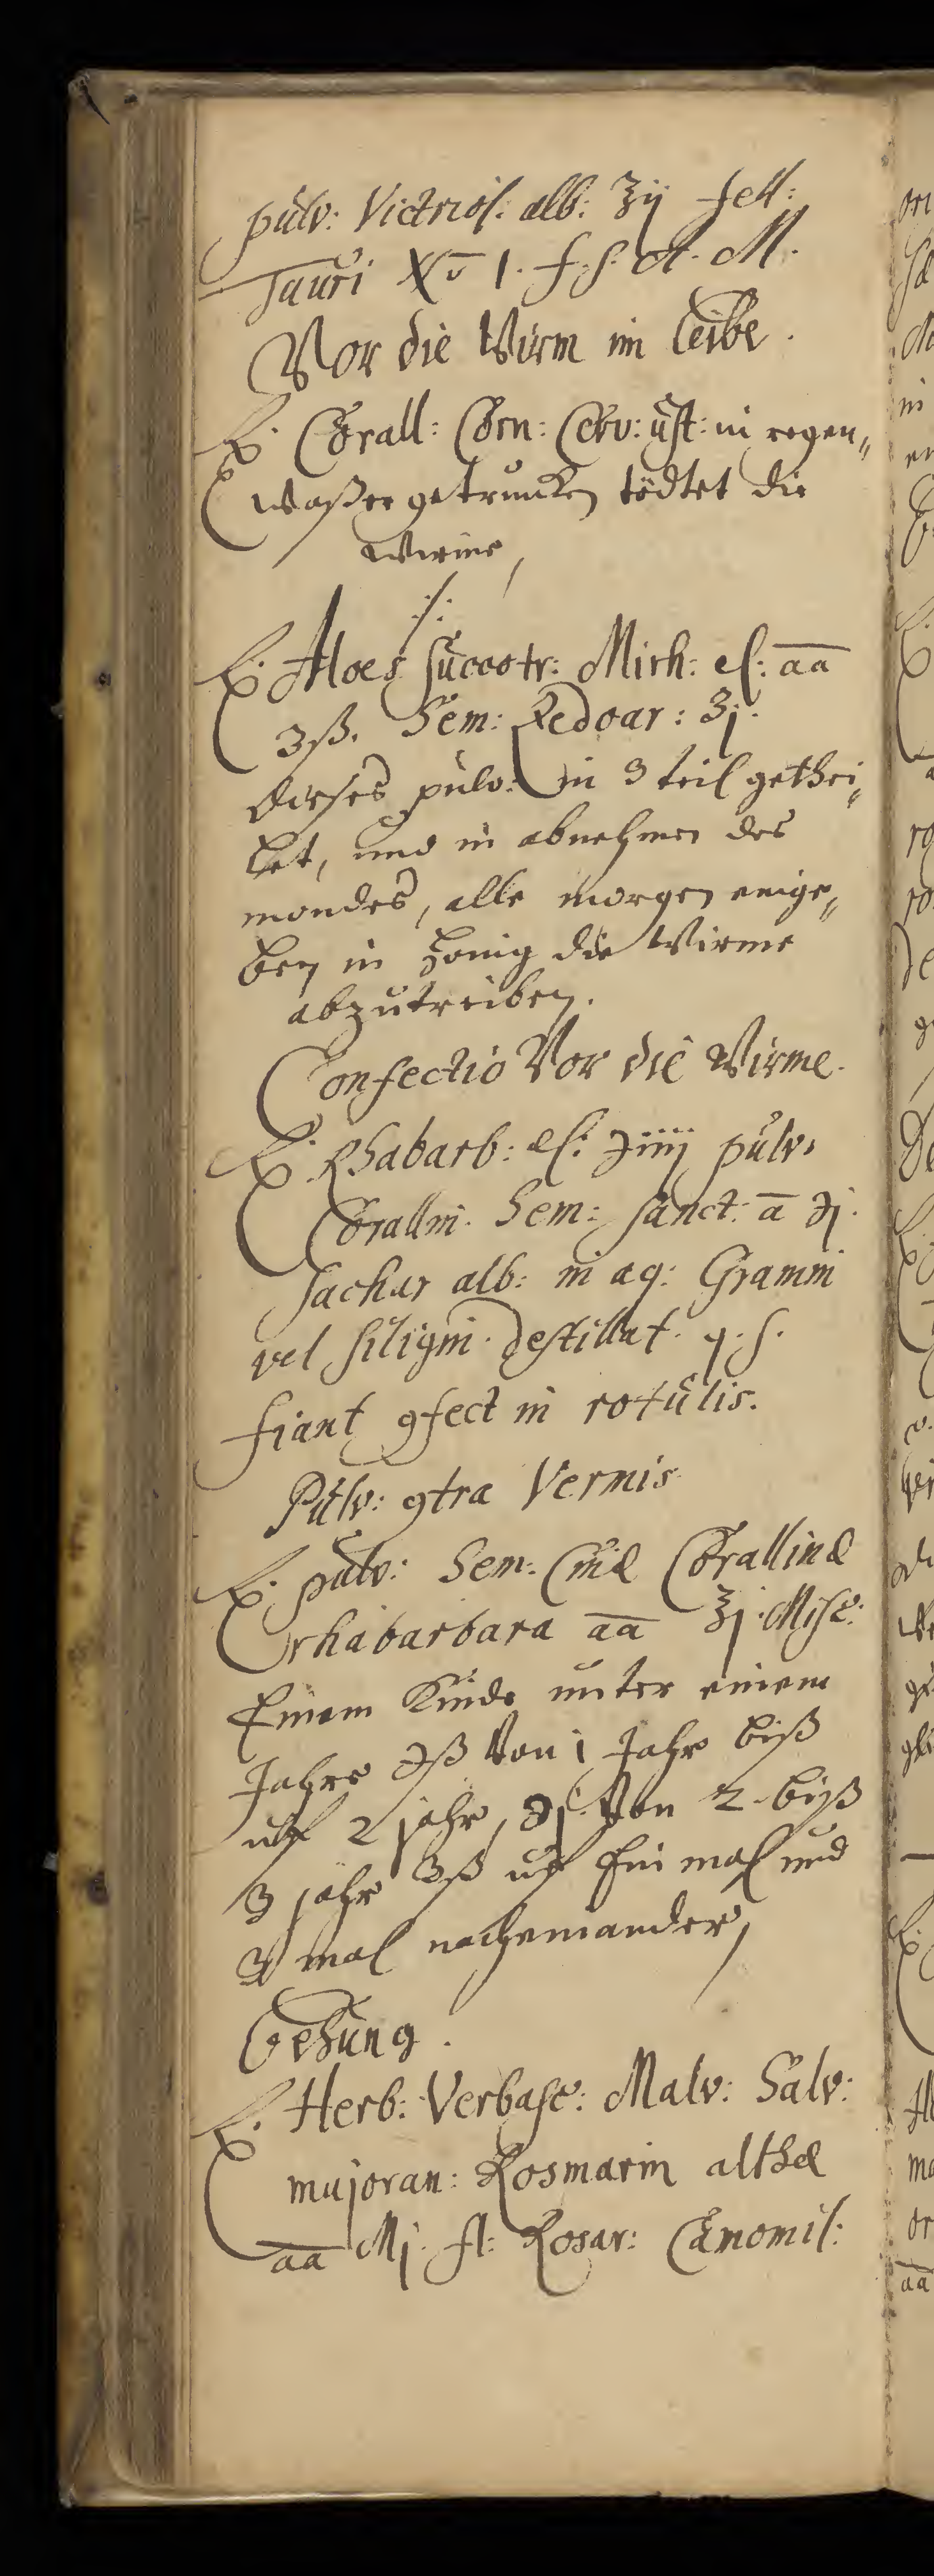 pulv: Victriol: alb: ʒij fell:
Tauri No 1. f. s. A. M.
Vor die Würm im Leibe.
℞. Corall: Corn: Cerv: ust: in regen„
waßer getruncken tödtet die
Würme,
⁒
℞. Aloes succotr: Mirh: el: aa
ʒß. Sem: Zedoar: ʒj.
dieses pulv: in 3 teil gethei„
let, und in abnehmen des
mondes, alle morgen einge„
ben in honig die Würme
abzutreiben.
Confectio Vor die Würme.
℞. Rhabarb: el: ℈iiij pulv.
Corallin. Sem: sanct: a ℈j.
sachar alb: in aq: Gramin
vel siligin. destillat. q. s.
fiant ꝯfect in rotulis.
Pulv: ꝯtra Vermis
℞. pulv: Sem: Cinæ Corallinæ
rhabarbara aa ʒj. Misc:
Einem Kinde unter einem
Jahre ℈ß Von 1 Jahr biß
uff 2 jahr, ℈j. Von 2 biß
3 jahr ʒß uff Ein mal und
3 mal nacheinander,
Behung.
℞. Herb: Verbasc: Malv: Salv:
majoran: Rosmarin altheæ
aa Mj. fl: Rosar: Camomil: